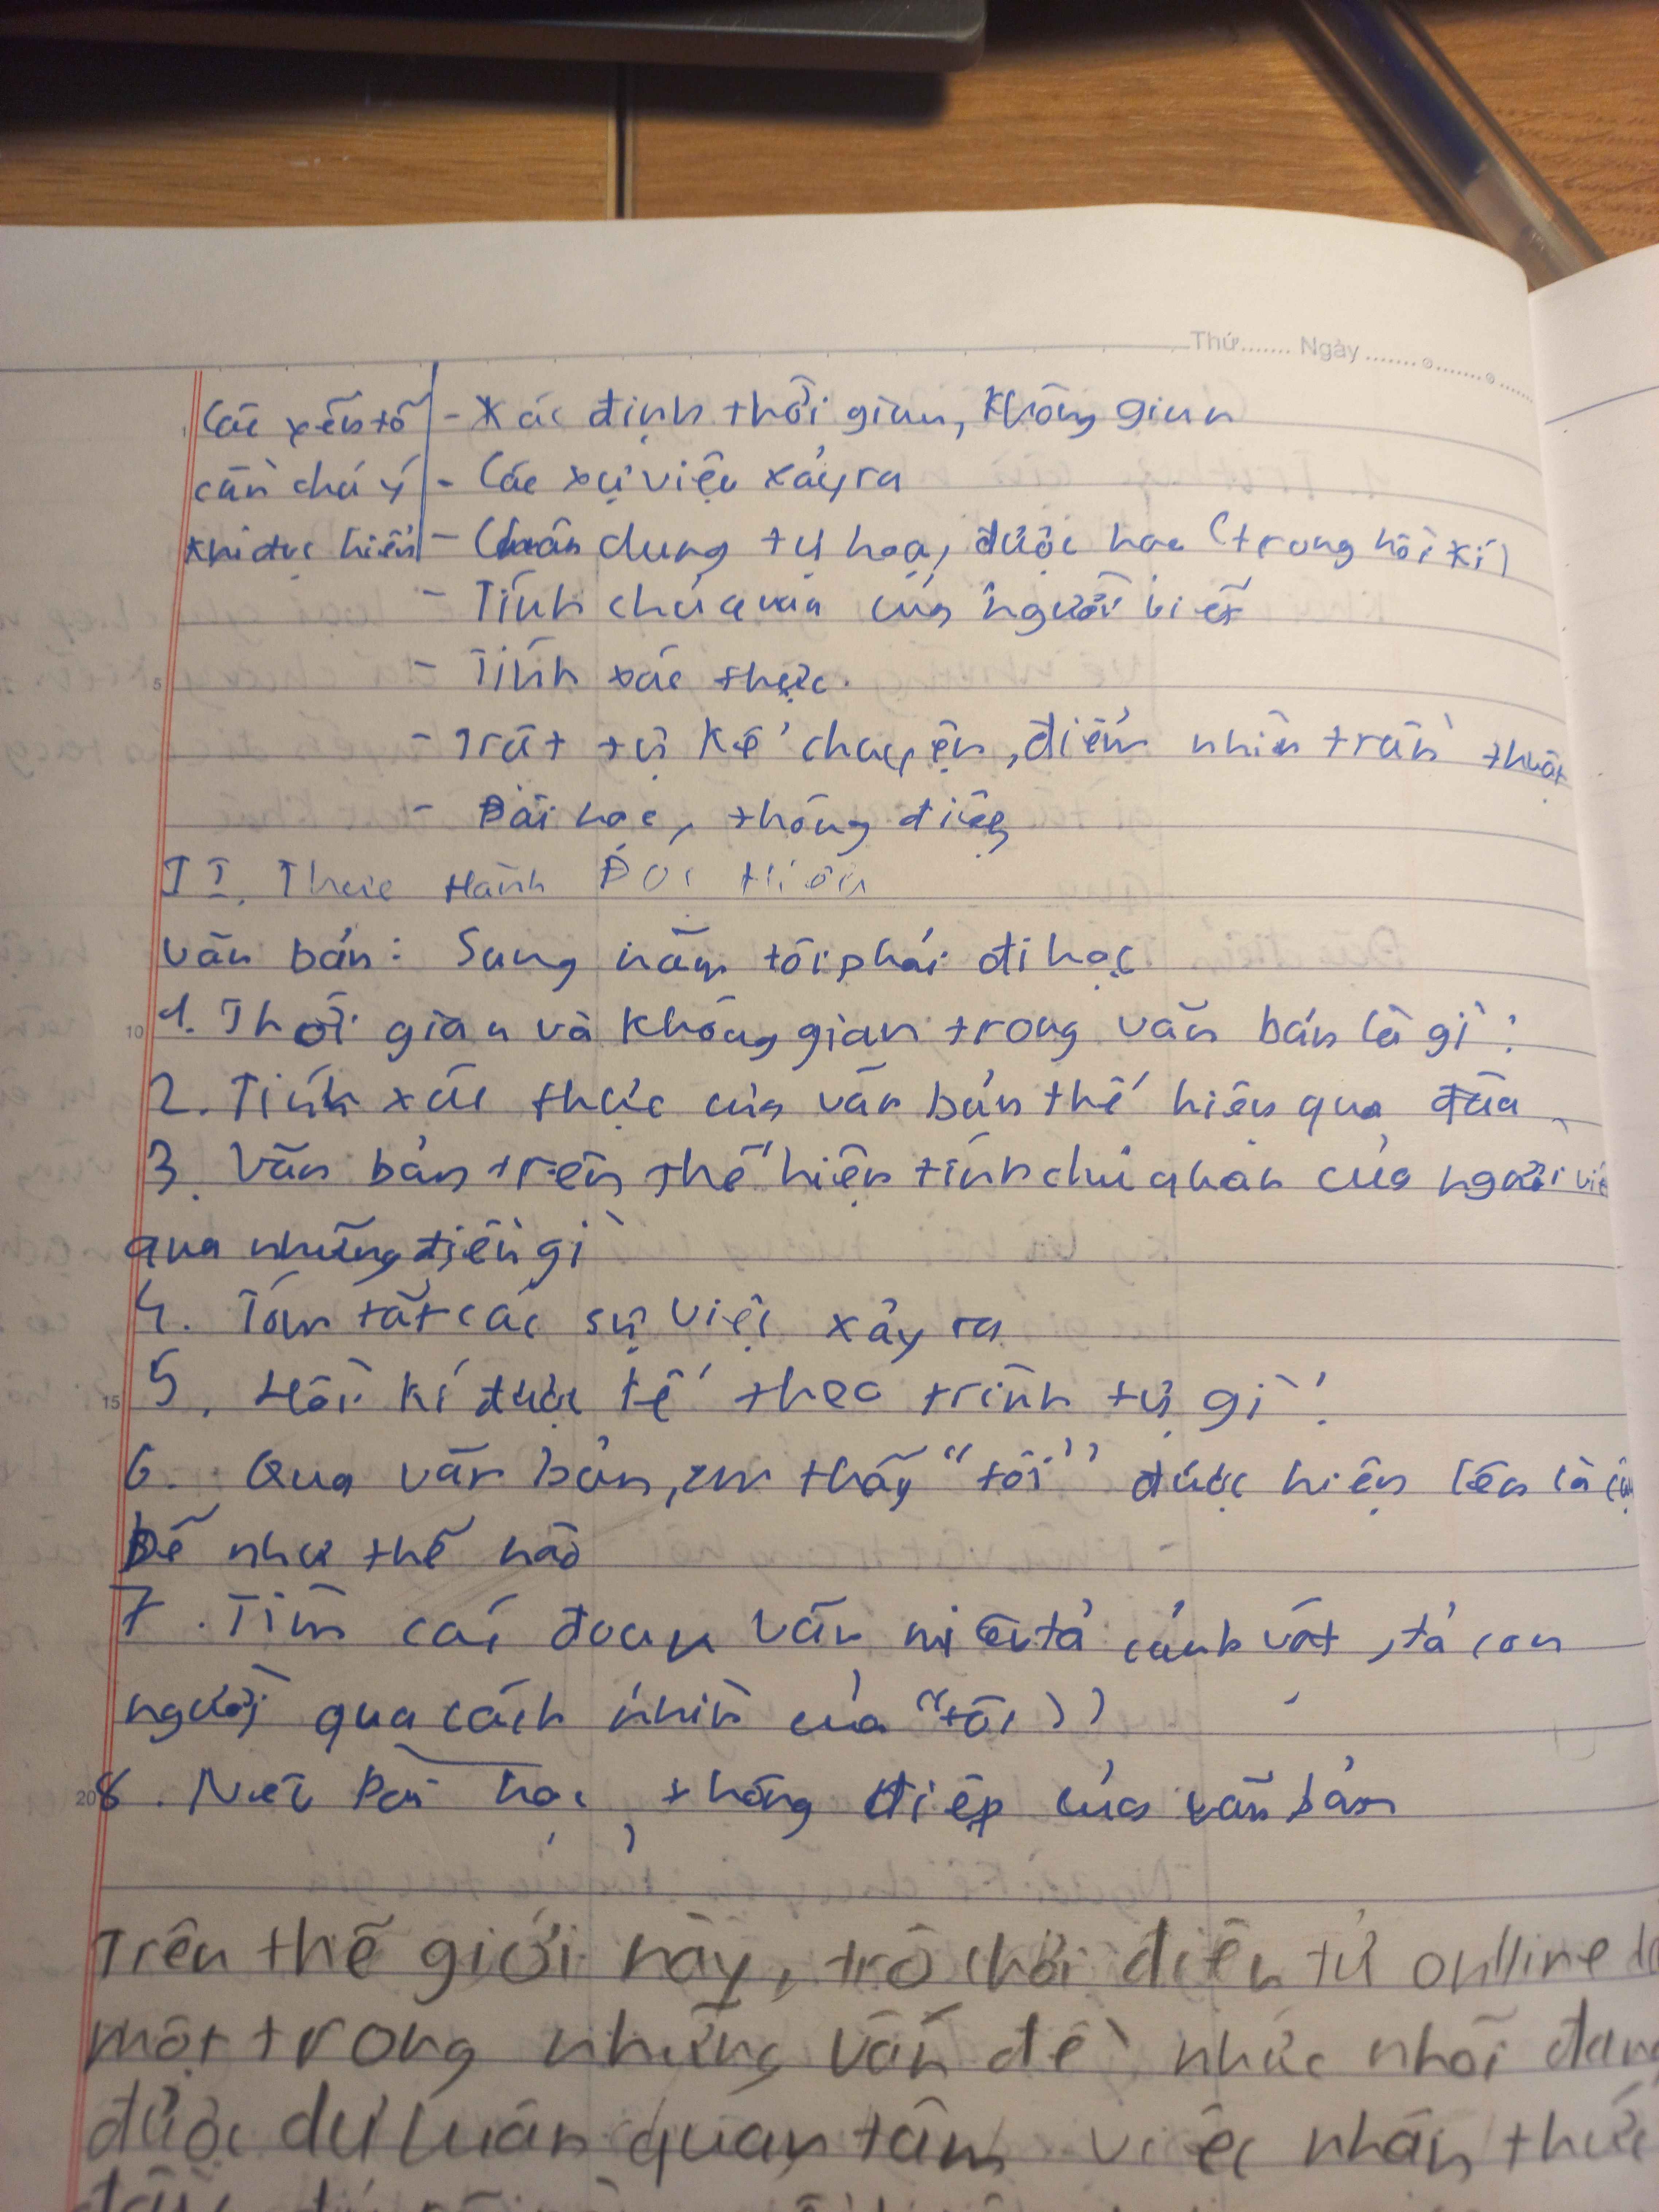 Thứ....... Ngày ....................
Các yếu tố - Xác định thời gian, không gian
cần chú ý - Các sự việc xảy ra
khi đọc hiểu - Chân dung tự hoạ, được hoạ (trong hồi kí)
- Tính chủ quan của người viết
5 - Tính xác thực.
- Trật tự kể chuyện, điểm nhìn trần thuật
- Bài học, thông điệp
II. Thực Hành Đọc Hiểu
văn bản: Sang năm tôi phải đi học
10 1. Thời gian và không gian trong văn bản là gì?
2. Tính xác thực của văn bản thể hiện qua đâu
3. Văn bản trên thể hiện tính chủ quan của người
qua những điều gì
4. Tóm tắt các sự việc xảy ra
15 5. Hồi kí được kể theo trình tự gì?
6. Qua văn bản, em thấy "tôi" được hiện lên là
bé như thế nào
7. Tìm các đoạn văn miêu tả cảnh vật, tả con
người qua cách nhìn của "tôi"
20 8. Nêu bài học, thông điệp của văn bản
Trên thế giới này, trò chơi điện tử onlline
một trong những vấn đề nhức nhối đang
được dư luận quan tâm việc nhận thức